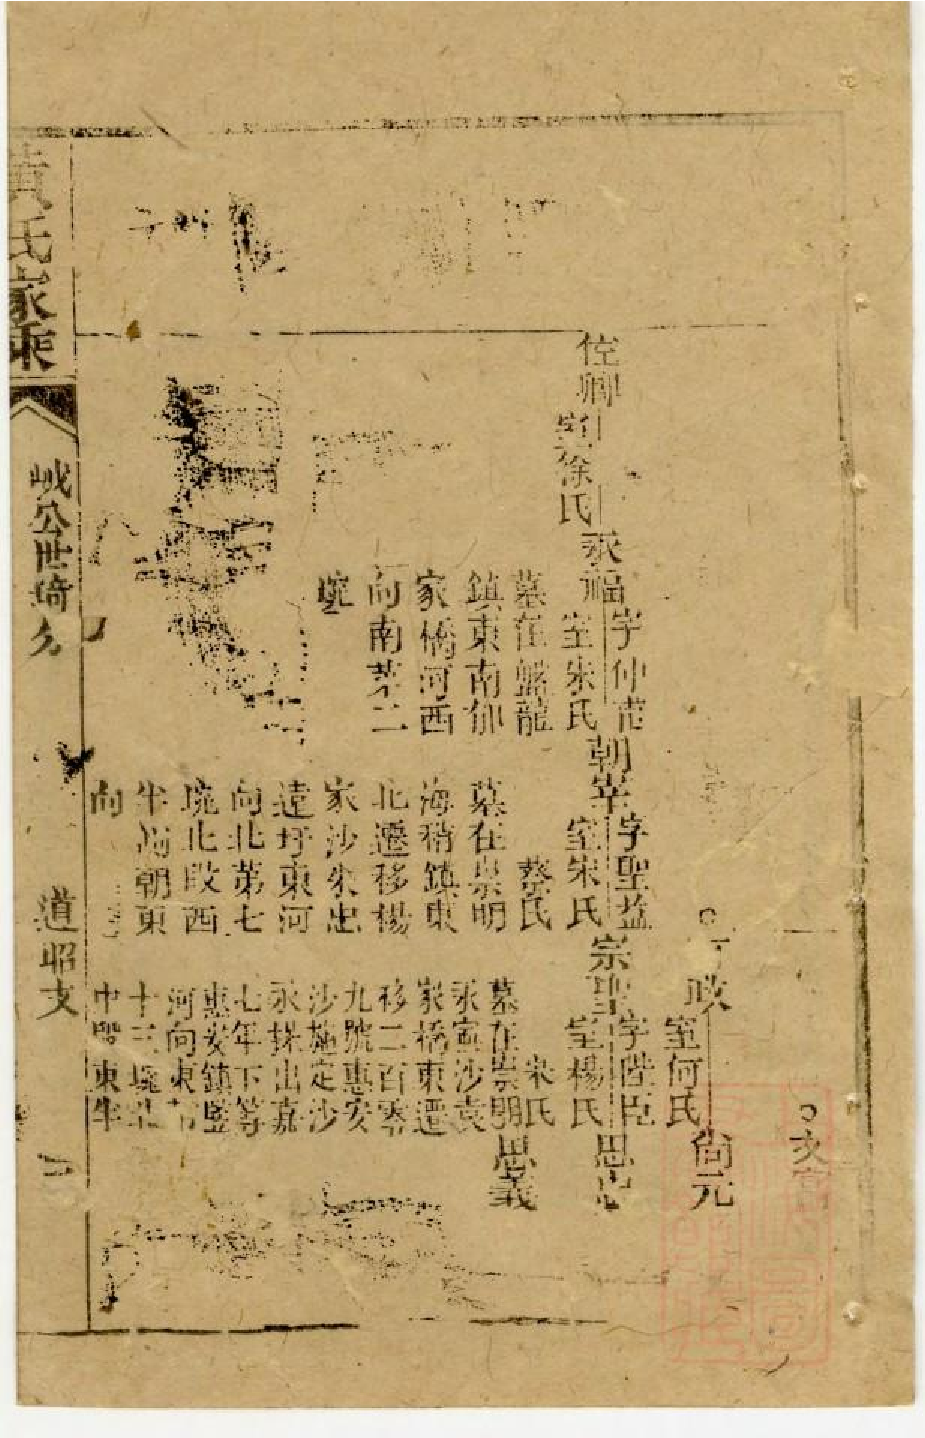 文
政
室何氏
尙元
佐卿
室徐氏
永福
字仲范
室朱氏
墓在蟠龍
鎮東南郁
家橋河西
向南第二
壙
朝宰
字聖益
室宋氏
蔡氏
墓在崇明
海稍鎮東
北遷移楊
家沙朱忠
達圩東河
向北第七
壙北段西
半崗朝東
向
宗聖
字陞臣
室楊氏
宋氏
墓在崇明
永寅沙袁
家橋東遷
移二百零
九號惠安
沙施定沙
永採出嘉
七年下等
惠安鎮竪
河向東
十三壙北
中段東半
思忠
思義
黃氏家乘
峸公世
道昭支